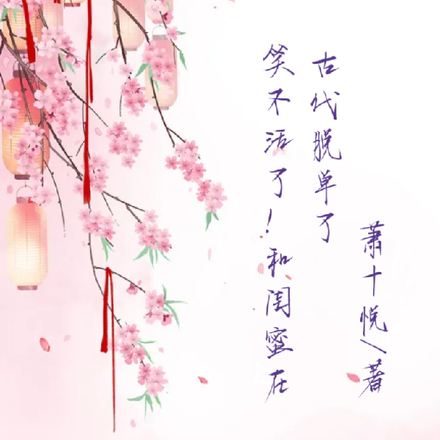 笑不活了！和闺蜜在
古代脱单了
萧十悦/著